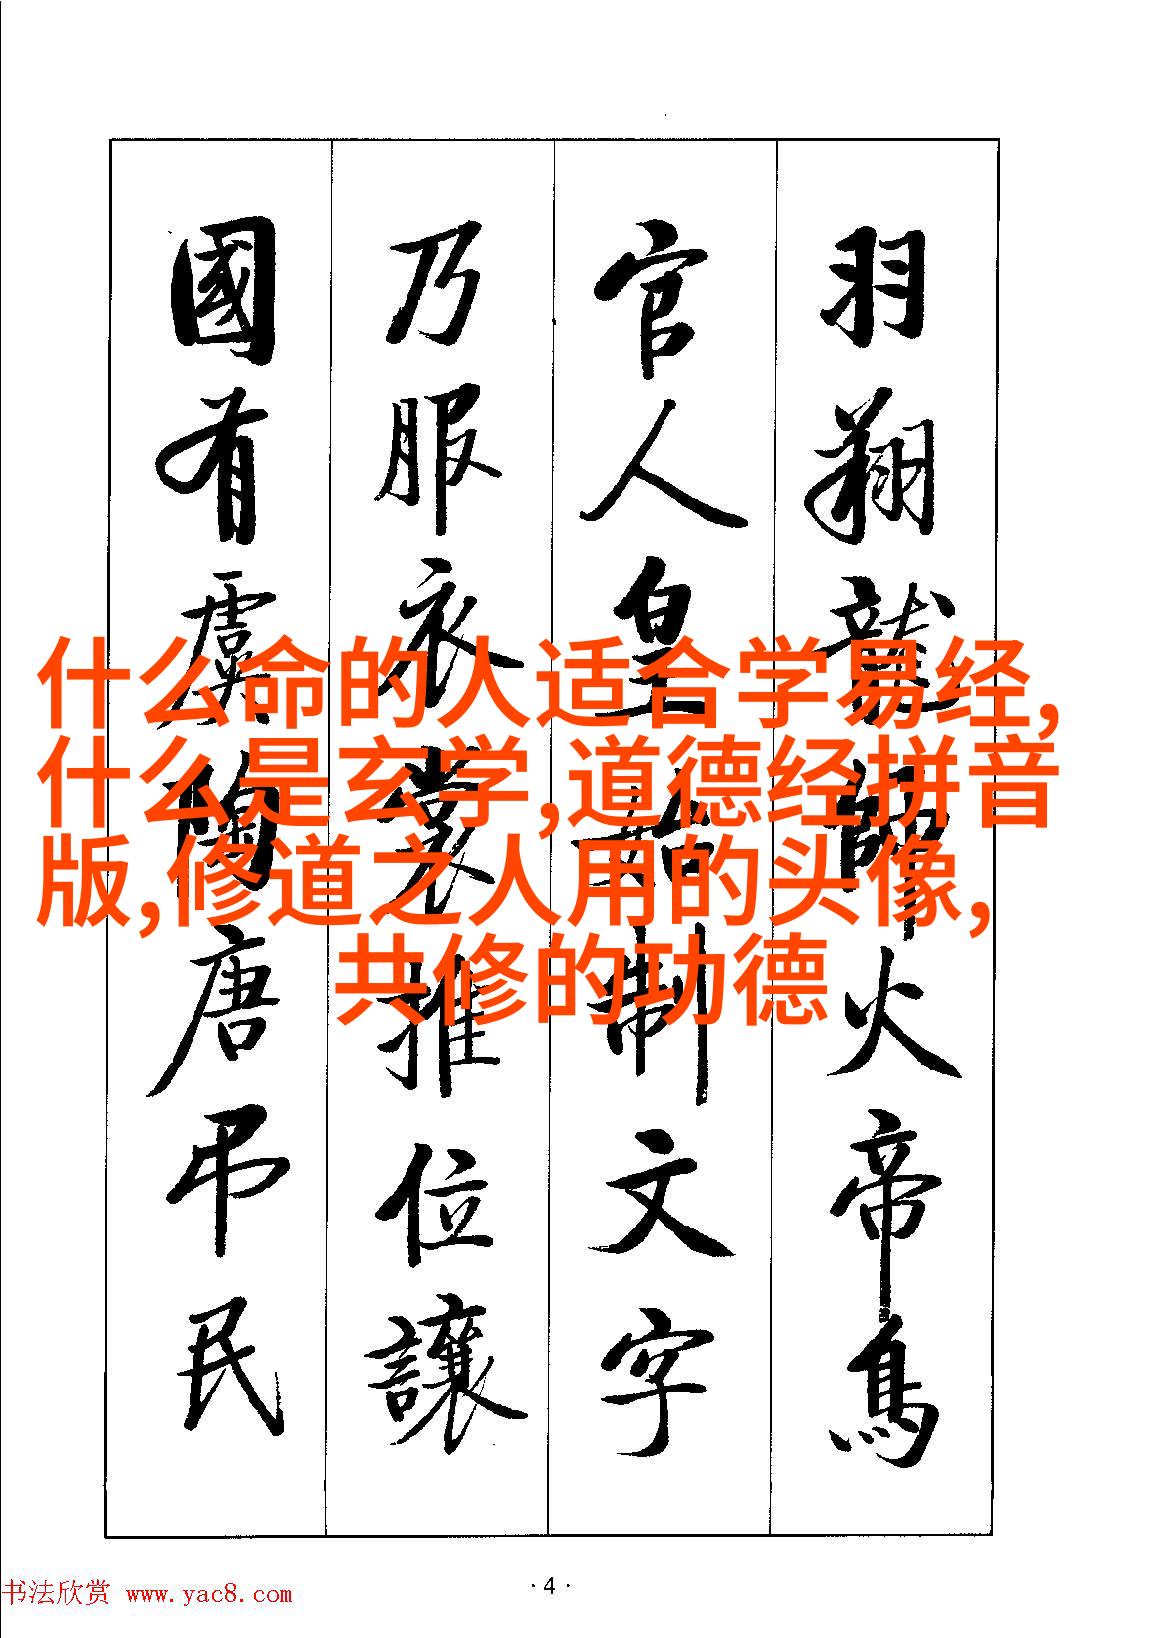 羽翔龍師火帝鳥
官人皇始制文字
乃服衣裳推位讓
國有虞陶唐弔民
什么命的人适合学易经,
什么是玄学,道德经拼音
版,修道之人用的头像,
共修的功德
书法欣赏 www.yac8.com
·4·